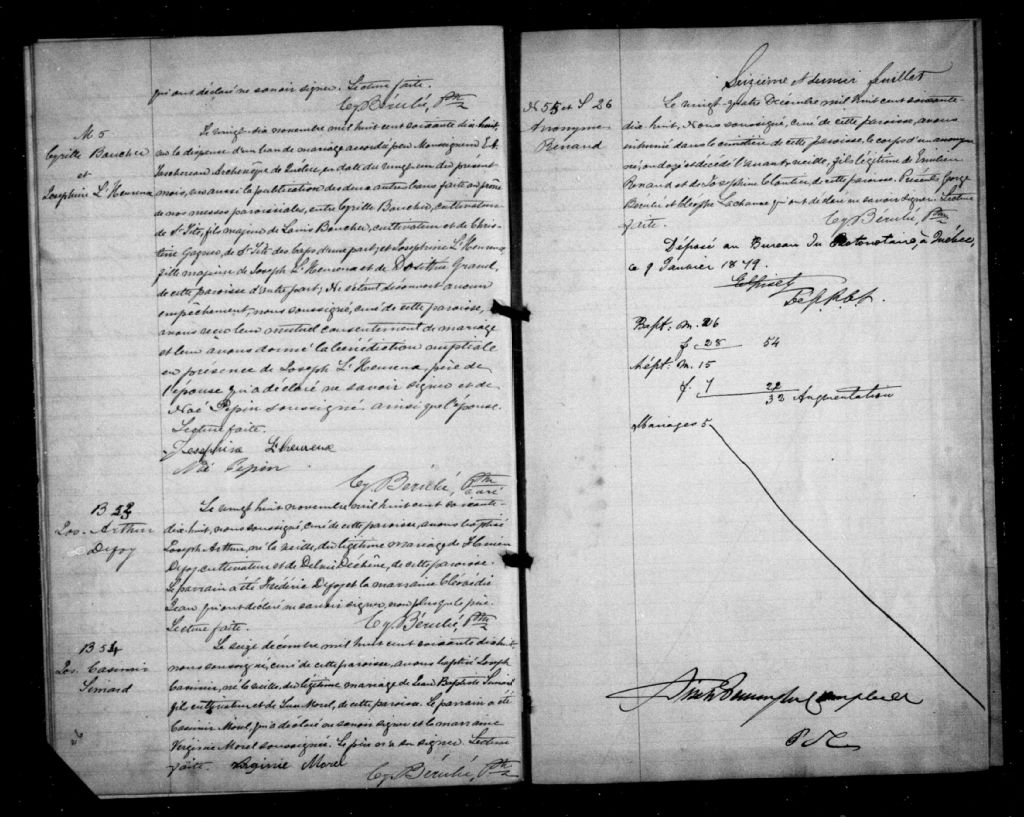 qui ont déclaré ne savoir signer. Lecture faite.
Cy. Bérubé, Ptre
M 5
Cyrille Boucher
et
Josephine L'Heureux
Le vingt-six novembre mil huit cent soixante dix huit,
vu la dispense d'un ban de mariage accordée par Monseigneur E. A.
Taschereau Archevêque de Québec en date du vingt un du présent
mois, vu aussi la publication des deux autres bans faite au prône
de nos messes paroissiales, entre Cyrille Boucher, cultivateur
de St Tite, fils majeur de Louis Boucher, cultivateur et de Chris-
tine Gagnon, de St Tite des Caps d'une part; et Josephine L'Heureux
fille majeure de Joseph L'Heureux et de Dosithée Giard,
de cette paroisse d'autre part; Ne s'étant découvert aucun
empêchement, nous soussigné, curé de cette paroisse,
avons reçu leur mutuel consentement de mariage
et leur avons donné la bénédiction nuptiale
en présence de Joseph L'Heureux, père de
l'épouse qui a déclaré ne savoir signer et de
Noé Pepin soussigné ainsi que l'épouse.
Lecture faite.
Josephine L'heureux
Noé Pepin
Cy. Bérubé, Ptre
curé
B 53
Jos. Arthur
Defoy
Le vingt huit novembre mil huit cent soixante-
dix-huit, nous soussigné, curé de cette paroisse, avons baptisé
Joseph Arthur, né la veille, du légitime mariage de
Defoy cultivateur et de Delvina Dechêne, de cette paroisse.
Le parrain a été Frédéric Defoy et la marraine
Jean qui ont déclaré ne savoir signer, non plus que le père.
Lecture faite.
Cy. Bérubé, Ptre
B 54
Jos. Casimir
Simard
Le seize décembre mil huit cent soixante dix huit
nous soussigné, curé de cette paroisse, avons baptisé Joseph
Casimir, né la veille, du légitime mariage de Jean Baptiste Simard
fils cultivateur et de Morel, de cette paroisse. Le parrain a été
Casimir Morel, qui a déclaré ne savoir signer et la marraine
Virginie Morel soussignée. Le père n'a su signer. Lecture
faite. Virginie Morel
Cy. Bérubé, Ptre
Seizième et dernier feuillet
N 55 et S 26
Anonyme
Renaud
Le vingt-quatre Décembre mil huit cent soixante-
dix huit, Nous soussigné, curé de cette paroisse, avons
inhumé dans le cimetière de cette paroisse, le corps d'un anonyme
né, ondoyé et décédé l'avant veille, fils légitime de
Renaud et de Josephine Cloutier, de cette paroisse. Présents, George
Bérubé et Lachance qui ont déclaré ne savoir signer. Lecture
faite.
Cy. Bérubé, Ptre
Déposé au Bureau du Protonotaire, à Québec,
ce 9 Janvier 1879.
Dep. P.C.S.
Bapt. M. 26
f. 28 54
Sépt. M. 15
f. 7 22
32 Augmentation
Mariages 5